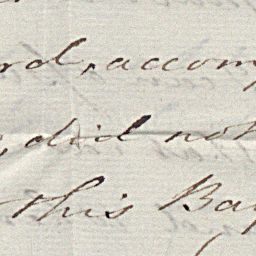 rd, accom
, did not
this Bay